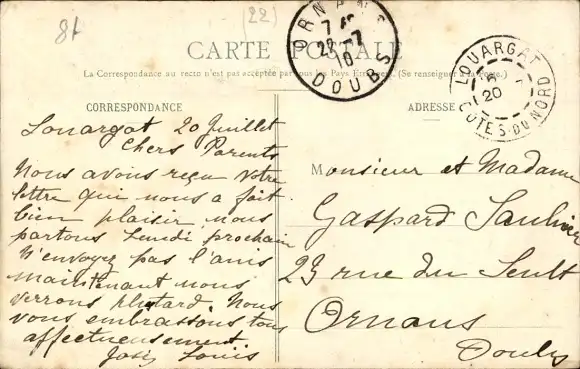 81
(22)
CARTE POSTALE
La Correspondance au recto n'est pas acceptée par tous les Pays Etrangers. (Se renseigner à la poste.)
ORNANS
DOUBS
LOUARGAT
20
COTES-DU-NORD
CORRESPONDANCE
ADRESSE
Louargat 20 Juillet
Chers Parents
Nous avons reçu votre
lettre qui nous a fait
bien plaisir, nous
partons Lundi prochain
N'envoyez pas l'anis
maintenant nous
verrons plutard. Nous
vous embrassons tous
affectueusement
Louis
Monsieur et Madame
Gaspard Saulnier
23 rue du Seult
Ornans
Doubs